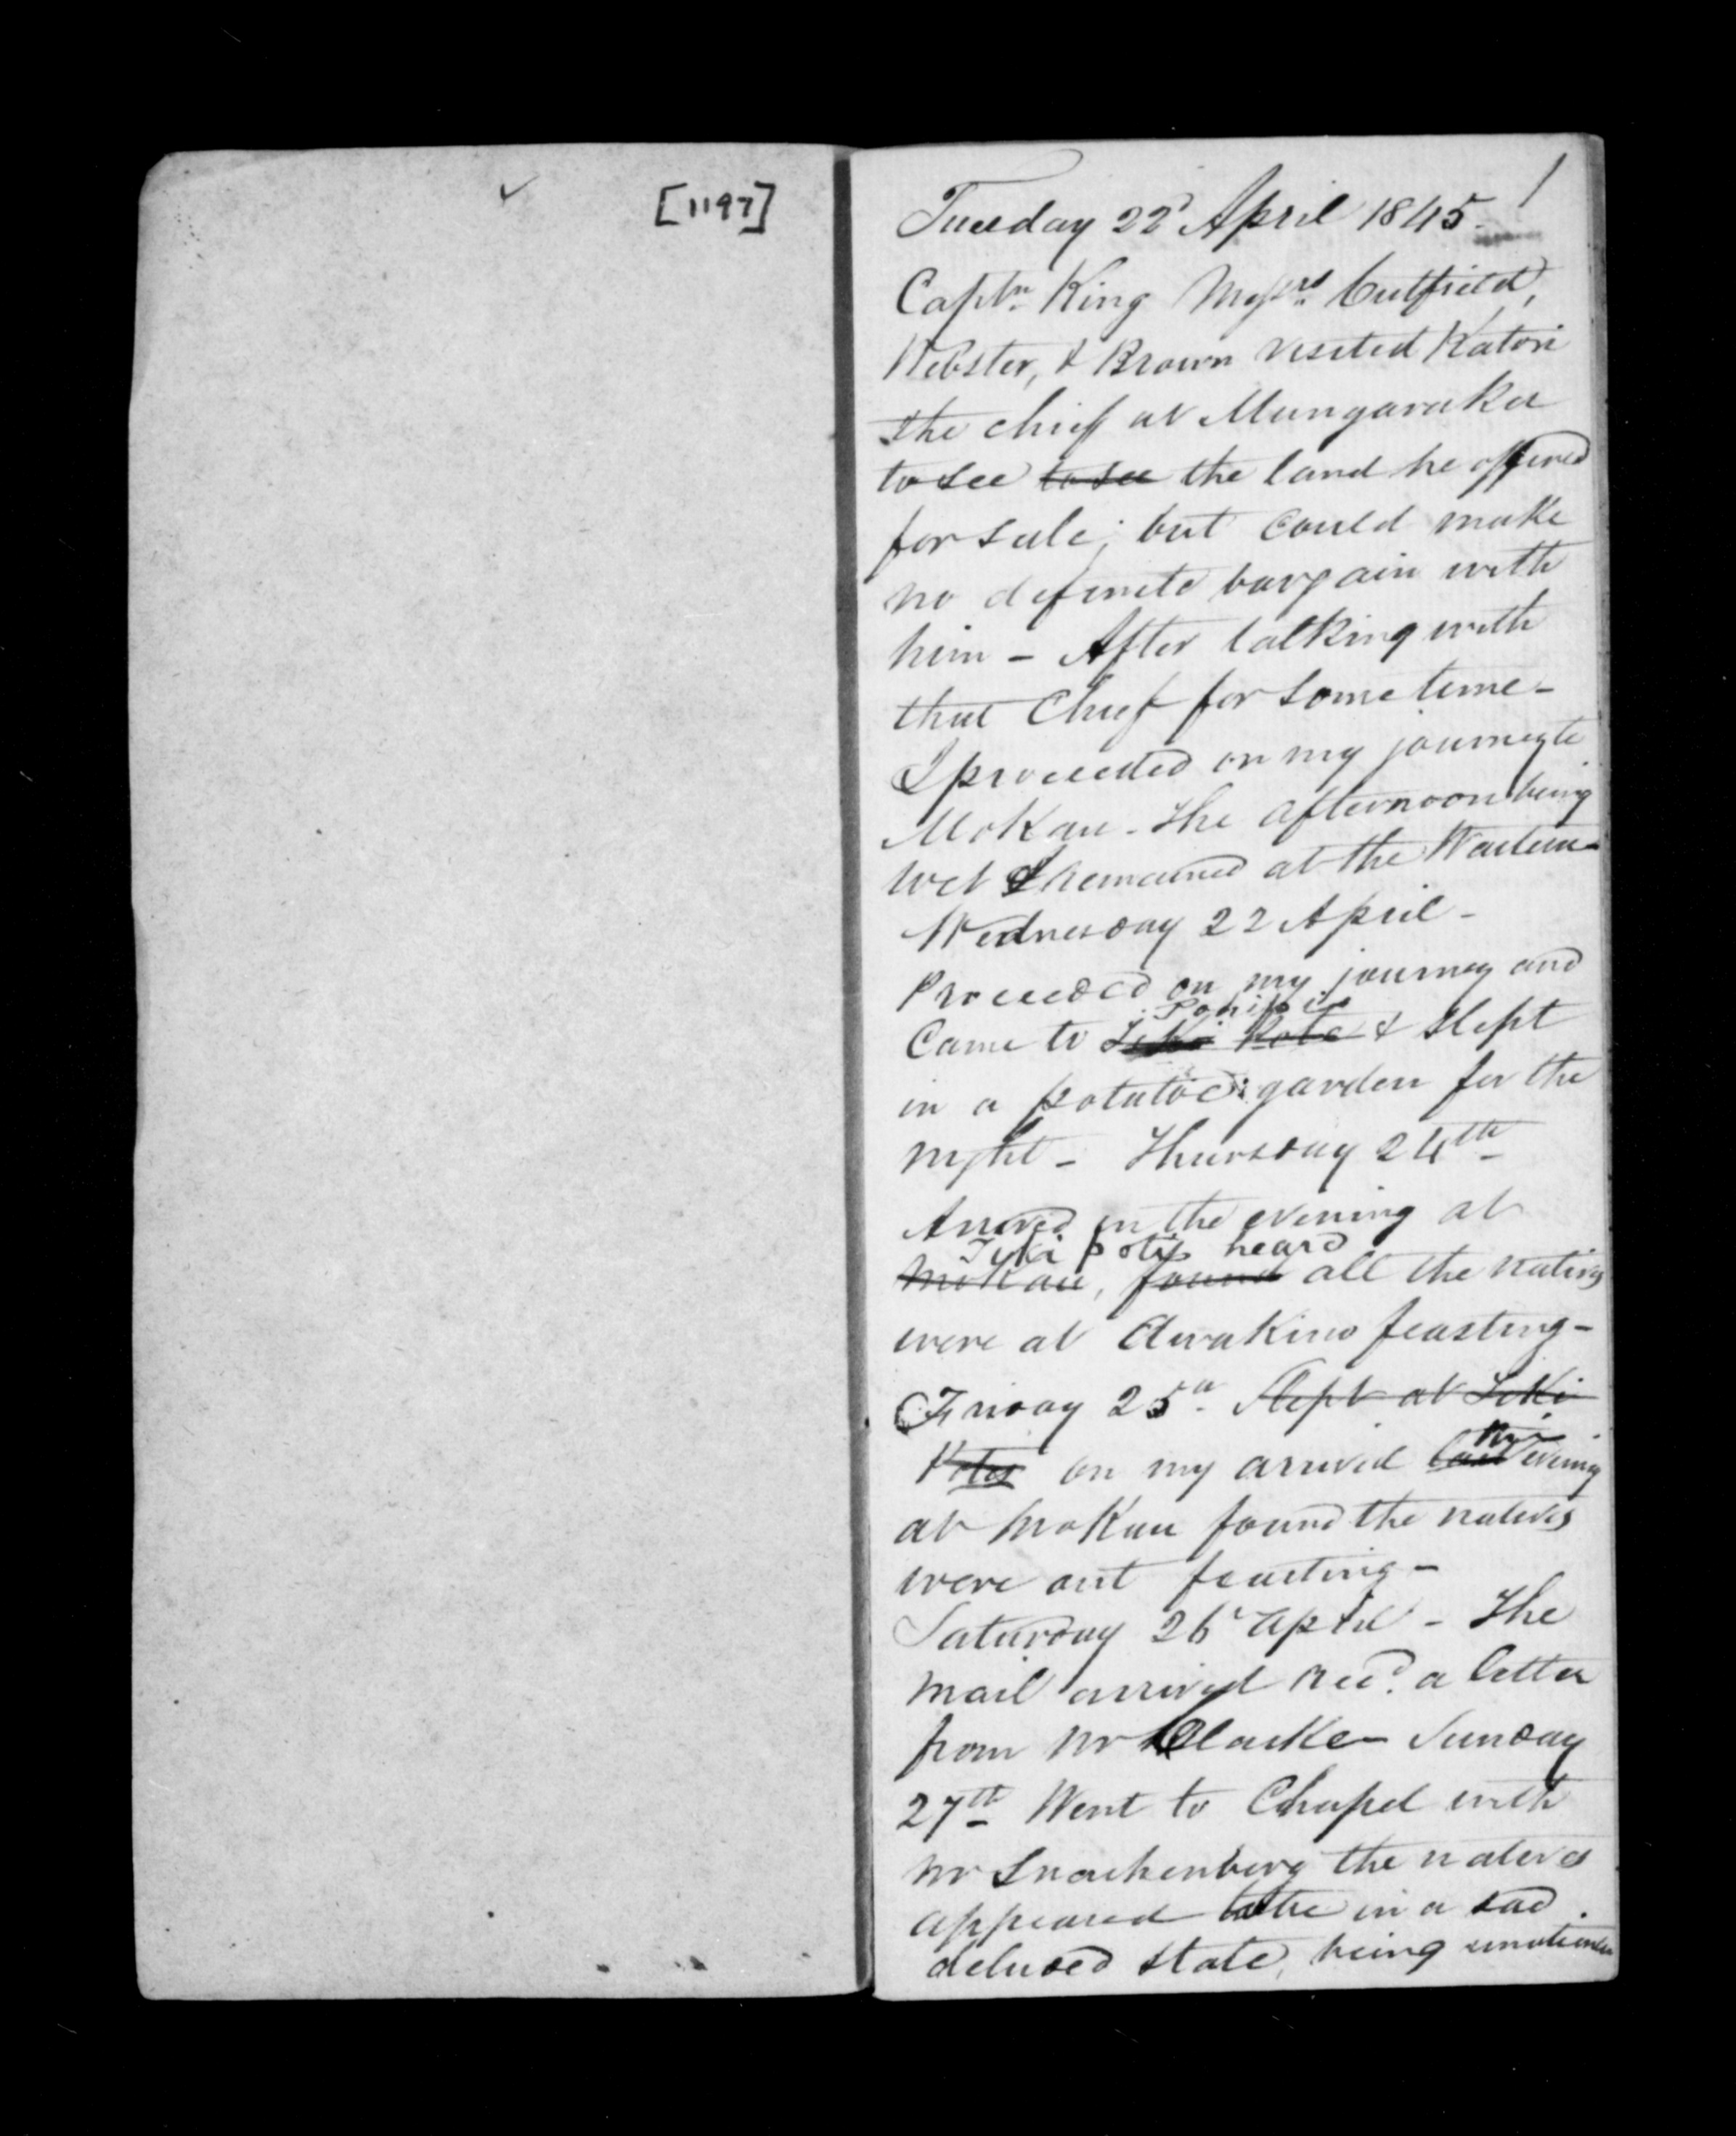 [1197]
1
Tuesday 22d April 1845.
Captn. King Messrs. Cutfield,
Webster, & Brown visited Katori
the chief at Mungaraka
to see to see the land he offered
for sale; but could make
no definite bargain with
him - After talking with
that Chief for some time -
I proceeded on my journey to
MoKau. The afternoon being
wet I remained at the
Wednesday 22 April -
Proceeded on my journey and
Came to & slept
in a potatoe garden for the
night - Thursday 24th -
Arrived in the evening at
Tiki poti heard
MoKau, found all the natives
were at AwaKino feasting -
Friday 25th. Slept at TiKi
Potu on my arrival last evening
at MoKau found the natives
were out feasting -
Saturday 26 April - The
mail arrived Recd. a letter
from Mr Clarke - Sunday
27th Went to Chapel with
Mr Snackenberg the natives
appeared to be in a sad
deluded state, being